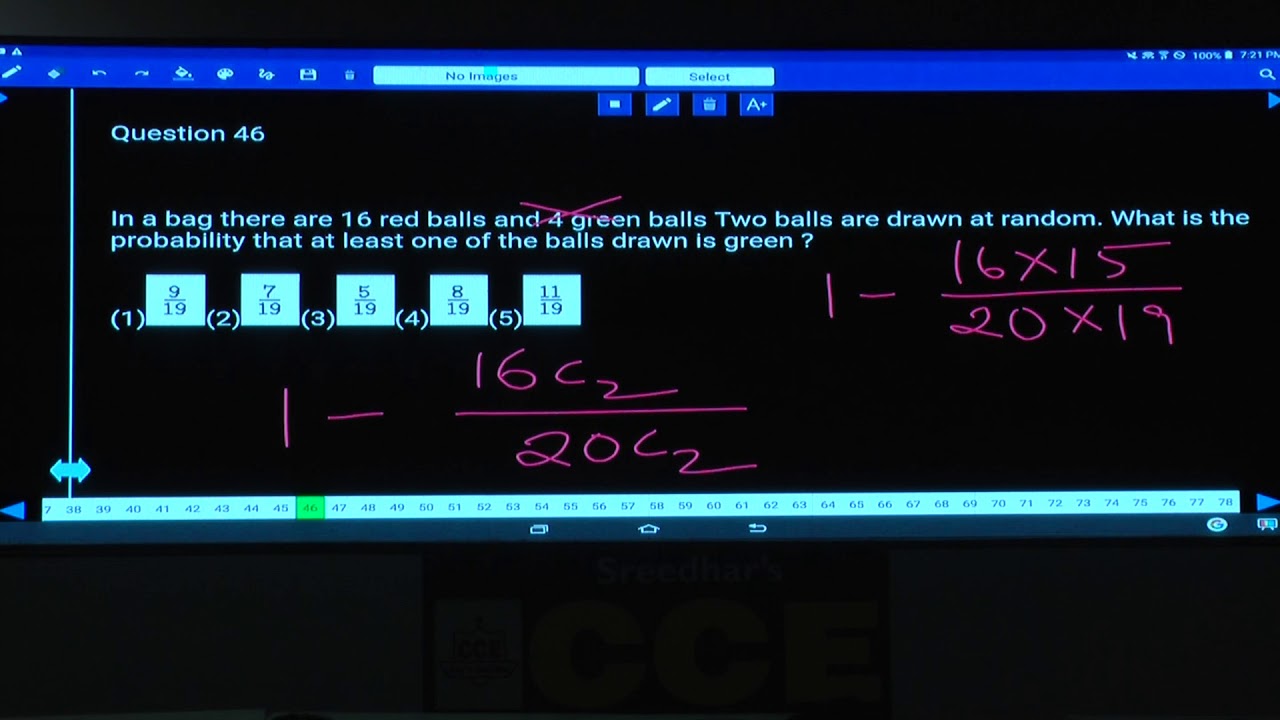 100% 7:21 PM
No Images Select
A+
Question 46
In a bag there are 16 red balls and 4 green balls Two balls are drawn at random. What is the
probability that at least one of the balls drawn is green ?
(1) 9/19 (2) 7/19 (3) 5/19 (4) 8/19 (5) 11/19
1 - 16×15 / 20×19
1 - 16C2 / 20C2
7 38 39 40 41 42 43 44 45 46 47 48 49 50 51 52 53 54 55 56 57 58 59 60 61 62 63 64 65 66 67 68 69 70 71 72 73 74 75 76 77 78
Sreedhar's
CCE
CCE